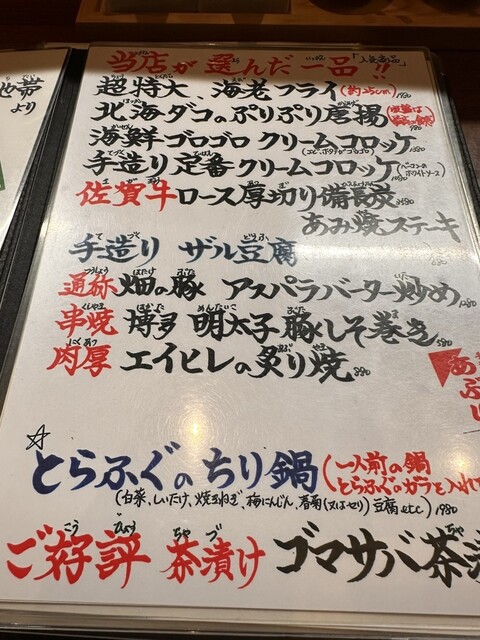 当店が選んだ一品!!「人気商品」
超特大 海老フライ(約25cm) 1980
北海ダコのぷりぷり唐揚 980
海鮮ゴロゴロ クリームコロッケ
手造り定番クリームコロッケ(ベーコンのホワイトソース)
佐賀牛ロース厚切り備長炭
あみ焼ステーキ
手造り ザル豆腐
通称 畑の豚 アスパラバター炒め
串焼 博多 明太子 豚しそ巻き
肉厚 エイヒレの炙り焼
地帯
より
とらふぐのちり鍋(一人前の鍋
とらふぐのガラを入れ
(白菜、しいたけ、焼ねぎ、梅にんじん、春菊(又はセリ)豆腐etc) 1980
ご好評 茶漬け ゴマサバ茶漬